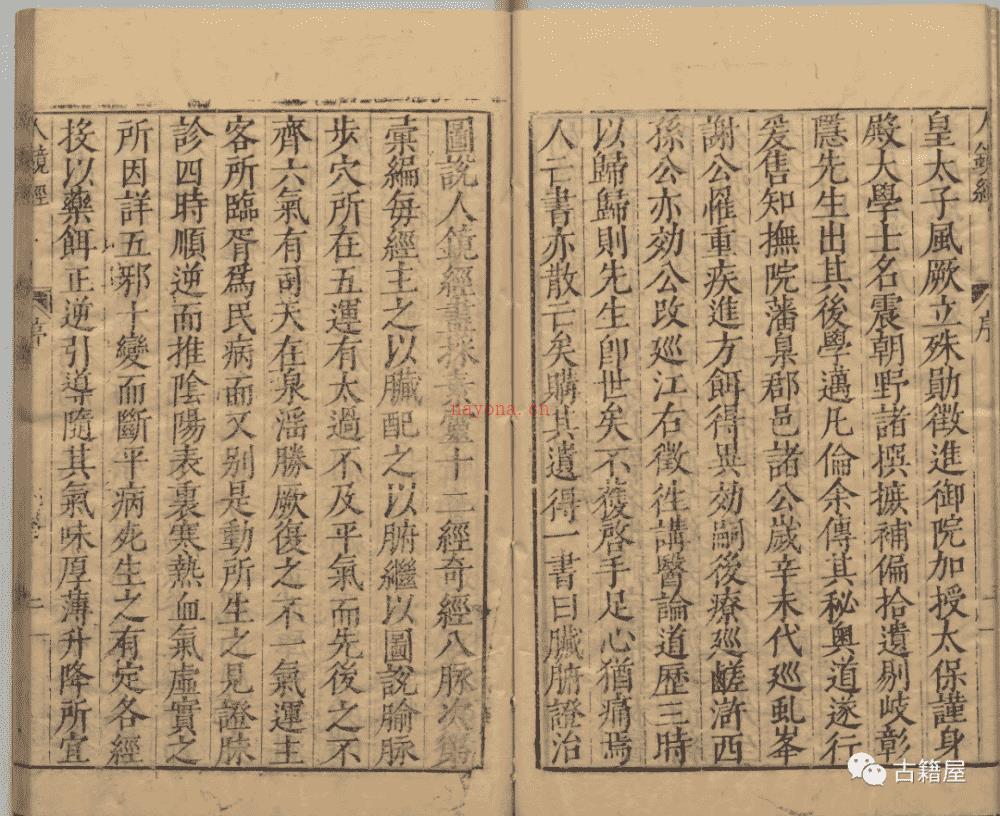 皇太子風厥立殊勛徵進御院加授太保謹身
殿大學士名震朝野諸撰摭補偏拾遺剔岐彰
隱先生出其後學邁凡倫余傳其秘奧道遂行
爰售知撫院藩臬郡邑諸公歲辛未代巡虬峯
謝公罹重疾進方餌得異効嗣後療巡鹺滸西
孫公亦効公改巡江右徵徃講醫論道歷三時
以歸歸則先生卽世矣不獲啓手足心猶痛焉
人亡書亦散亡矣購其遺得一書曰臟腑證治
圖說人鏡經盡採素靈十二經奇經八脉次第
彙編每經主之以臟配之以腑繼以圖說腧脉
步穴所在五運有太過不及平氣而先後之不
齊六氣有司天在泉滛勝厥復之不一氣運主
客所臨胥爲民病而又别是動所生之見證脉
診四時順逆而推陰陽表裏寒熱血氣虛實之
所因詳五邪十變而斷平病死生之有定各經
投以藥餌正逆引導隨其氣味厚薄升降所宜
人鏡經
序
nayona.cn
古籍屋